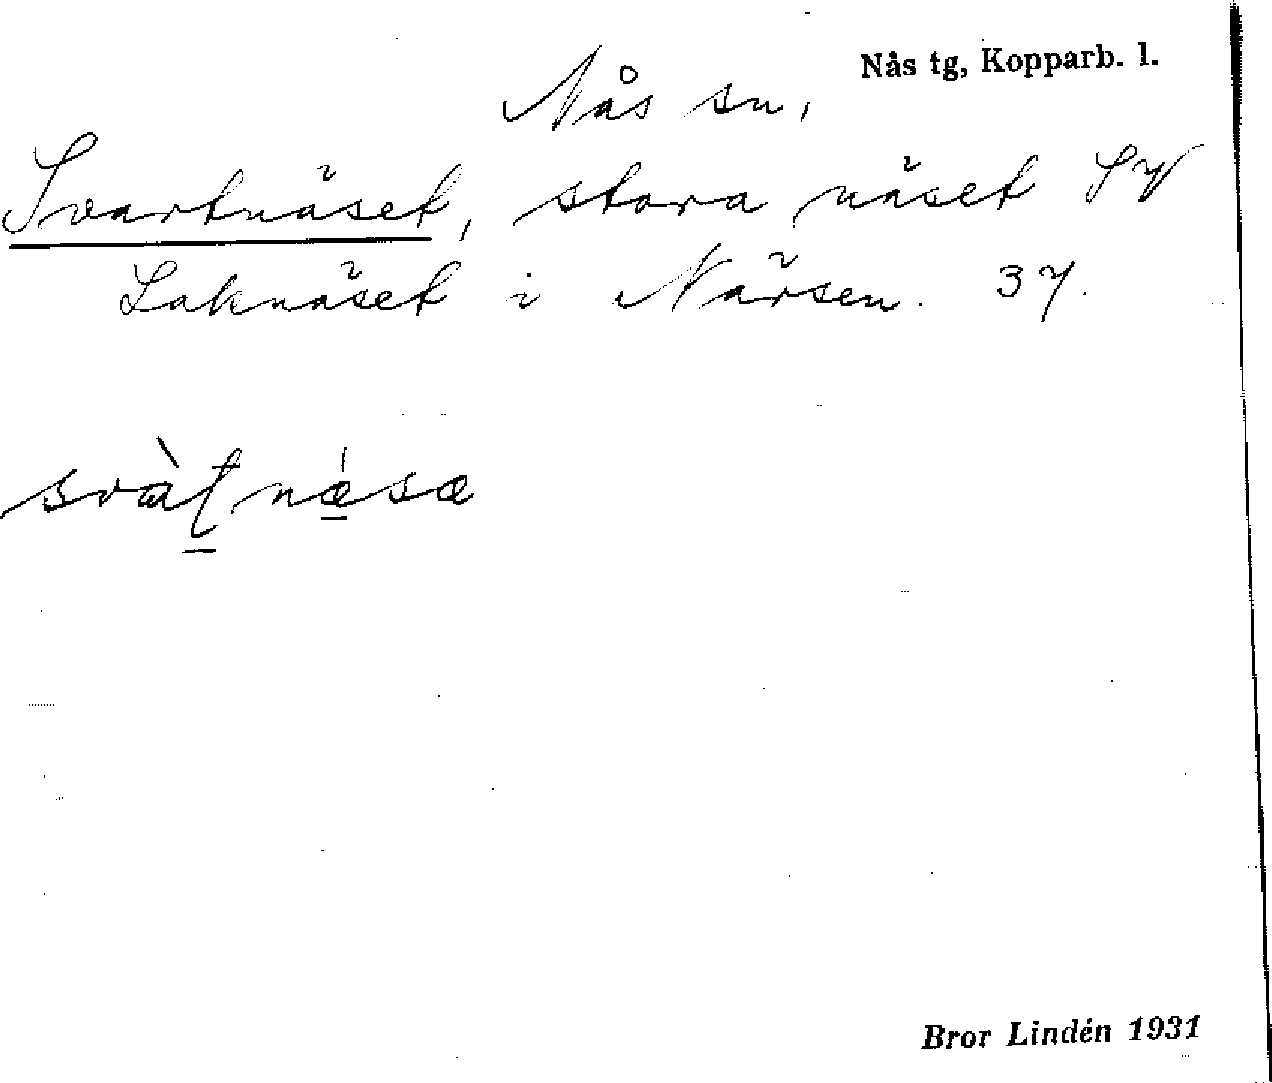 Nås tg, Kopparb. l.
Nås sn,
Svartnäset, stora näset SV
Laknäset i Närsen. 37.
svàt nǽsæ
Bror Lindén 1931